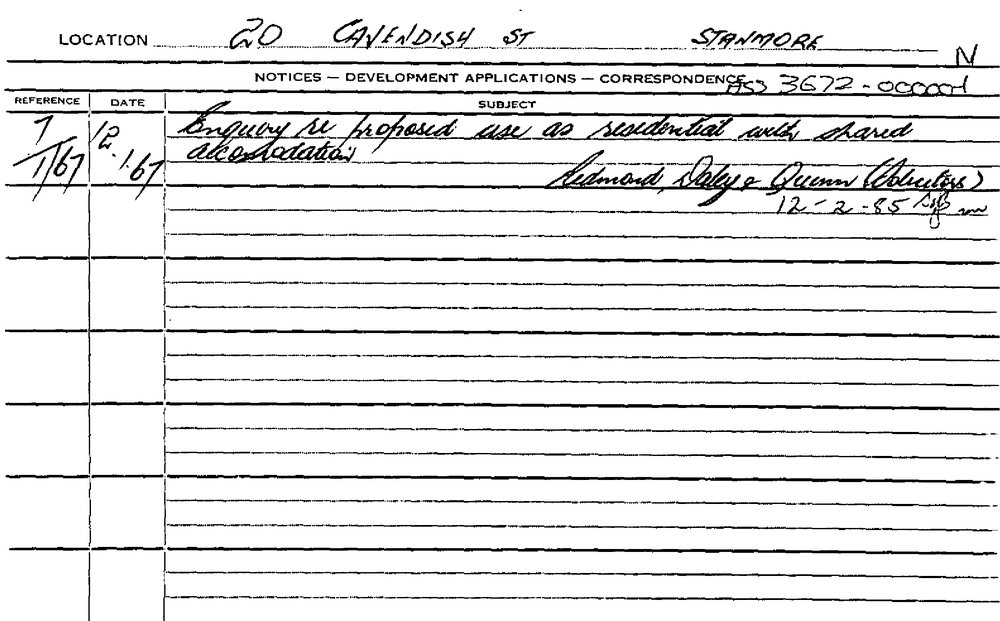 LOCATION 20 CAVENDISH ST STANMORE
N
NOTICES — DEVELOPMENT APPLICATIONS — CORRESPONDENCE
ASS 3672-000001
REFERENCE DATE SUBJECT
7/1/67 12.1.67 Enquiry re proposed use as residential with shared
accomodation
Redmond, Daley & Quinn (Solicitors)
12-2-85